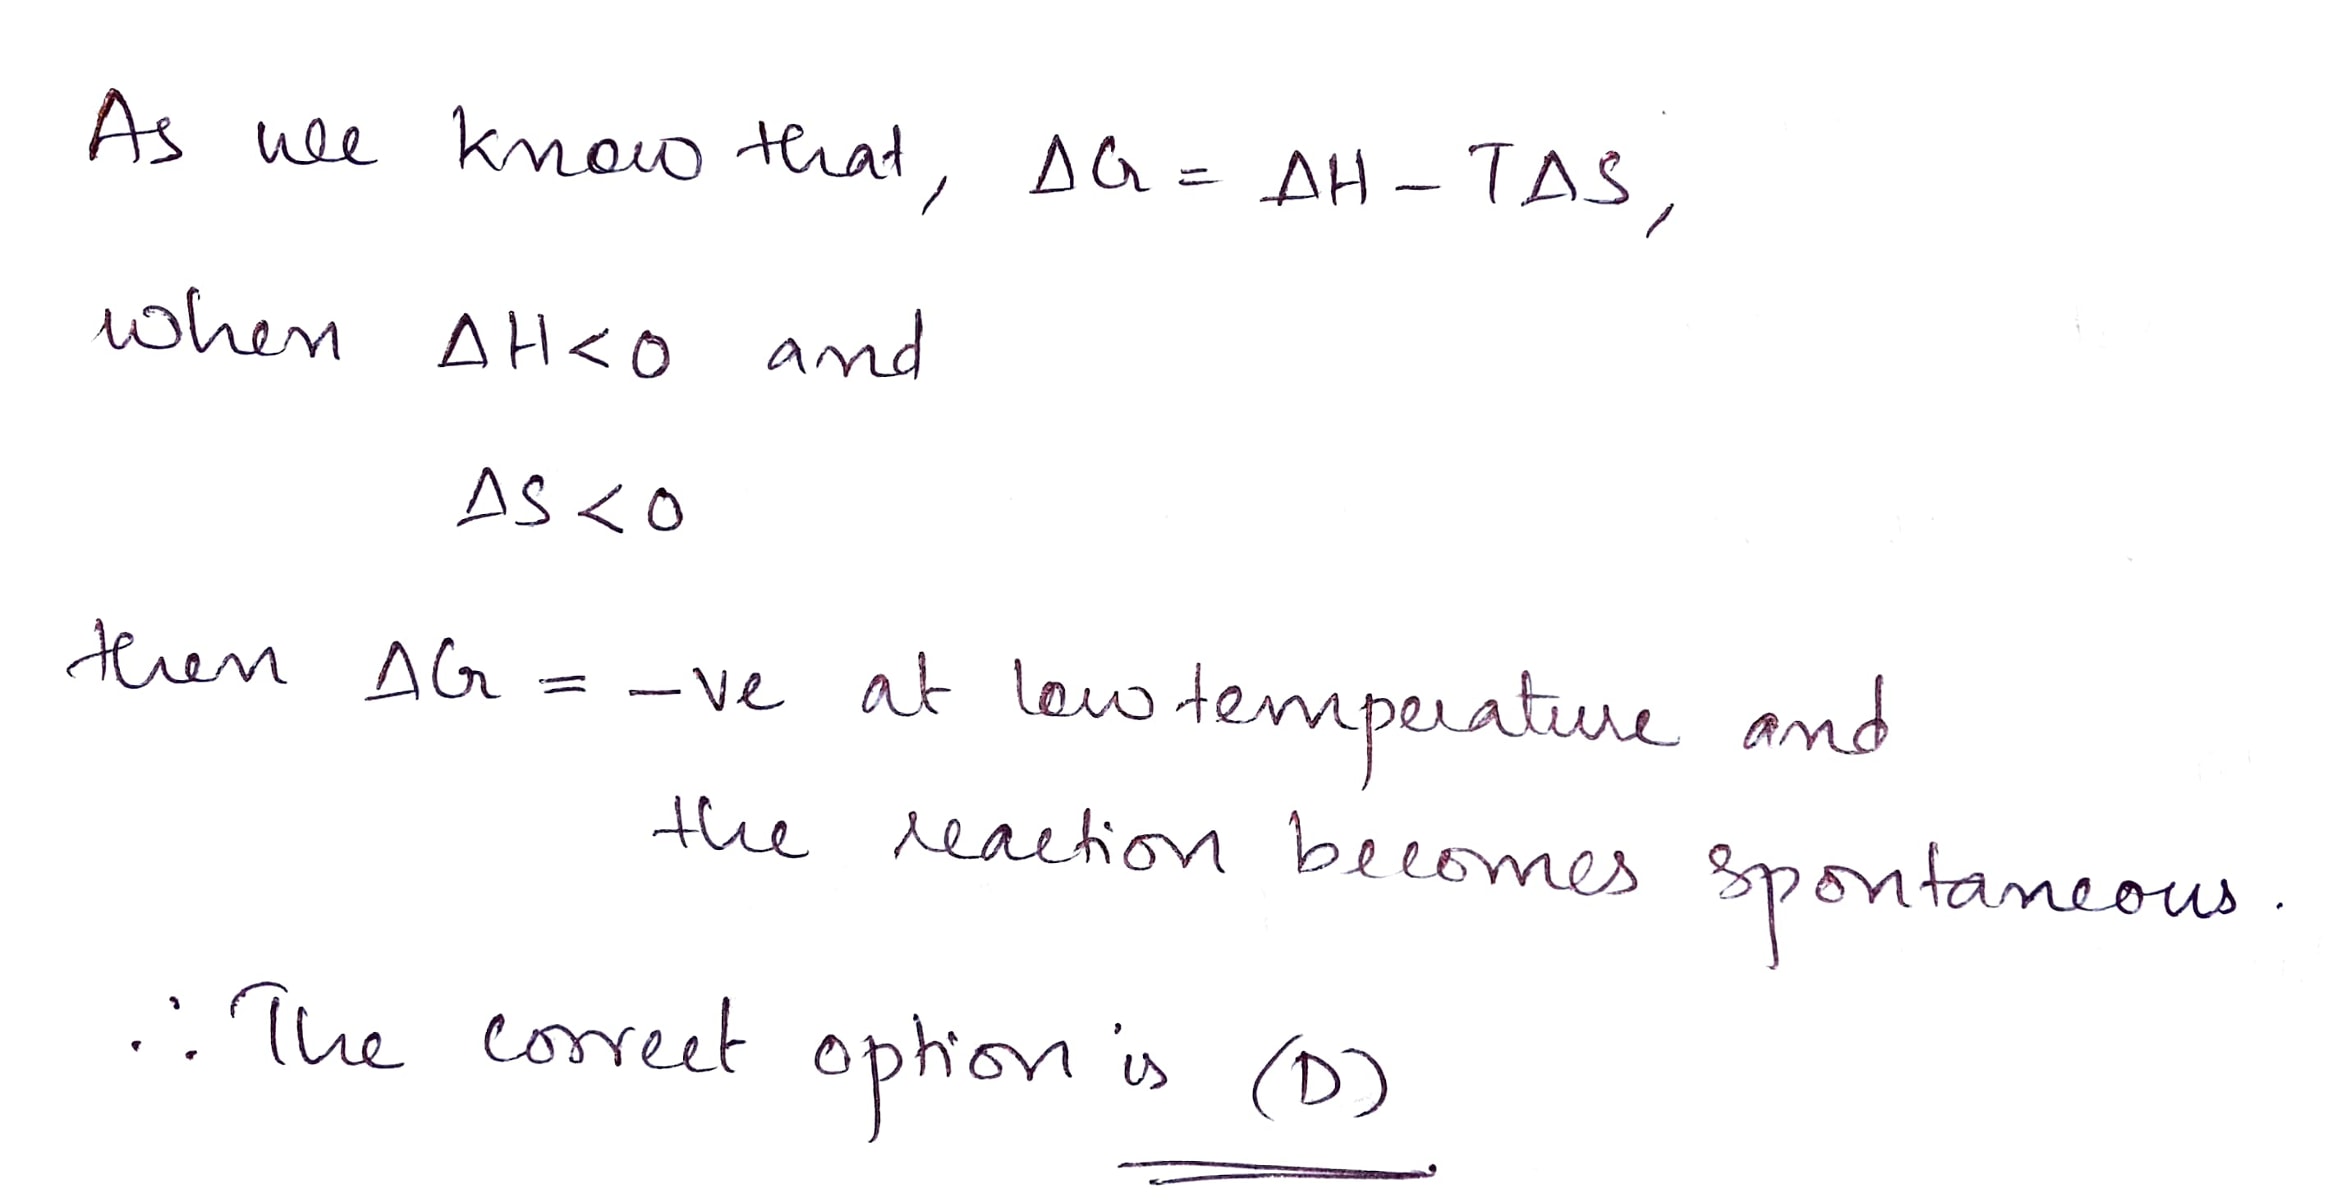 As we know that, ΔG = ΔH - TΔS,
when ΔH<0 and
ΔS<0
then ΔG = -ve at low temperature and
the reaction becomes spontaneous.
∴ The correct option is (D)